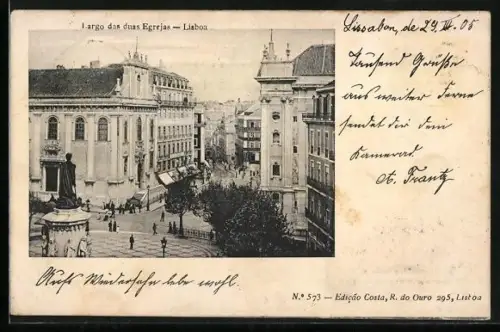 Largo das duas Egrejas — Lisboa
Lissabon, de 29. IV. 05
Tausend Grüße
aus weiter Ferne
sendet dir dein
Kamerad
A. Frantz
Aufs Wiedersehn lebe wohl.
N.º 573 — Edição Costa, R. do Ouro 295, Lisboa